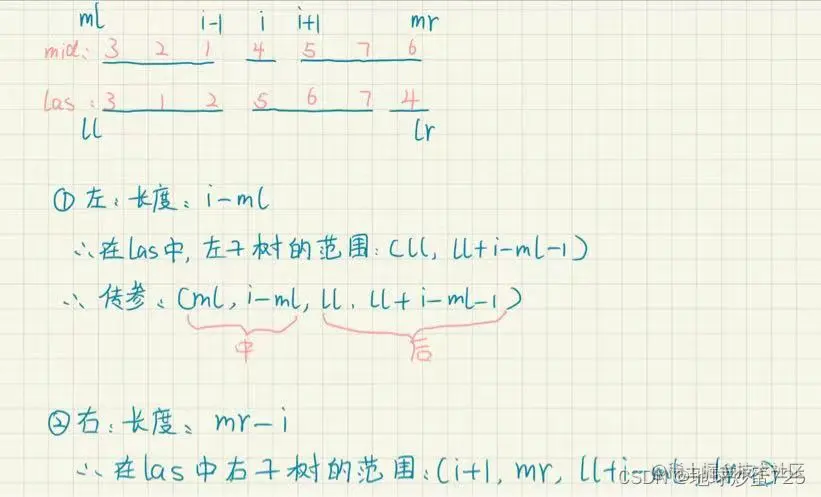 ml i-1 i i+1 mr
mid: 3 2 1 4 5 7 6
las: 3 1 2 5 6 7 4
ll lr
① 左: 长度: i-ml
∴在las中, 左子树的范围: (ll, ll+i-ml-1)
∴ 传参: (ml, i-ml, ll, ll+i-ml-1)
中 后
②右: 长度: mr-i
∴在las中右子树的范围: (i+1, mr, ll+i-
CSDN